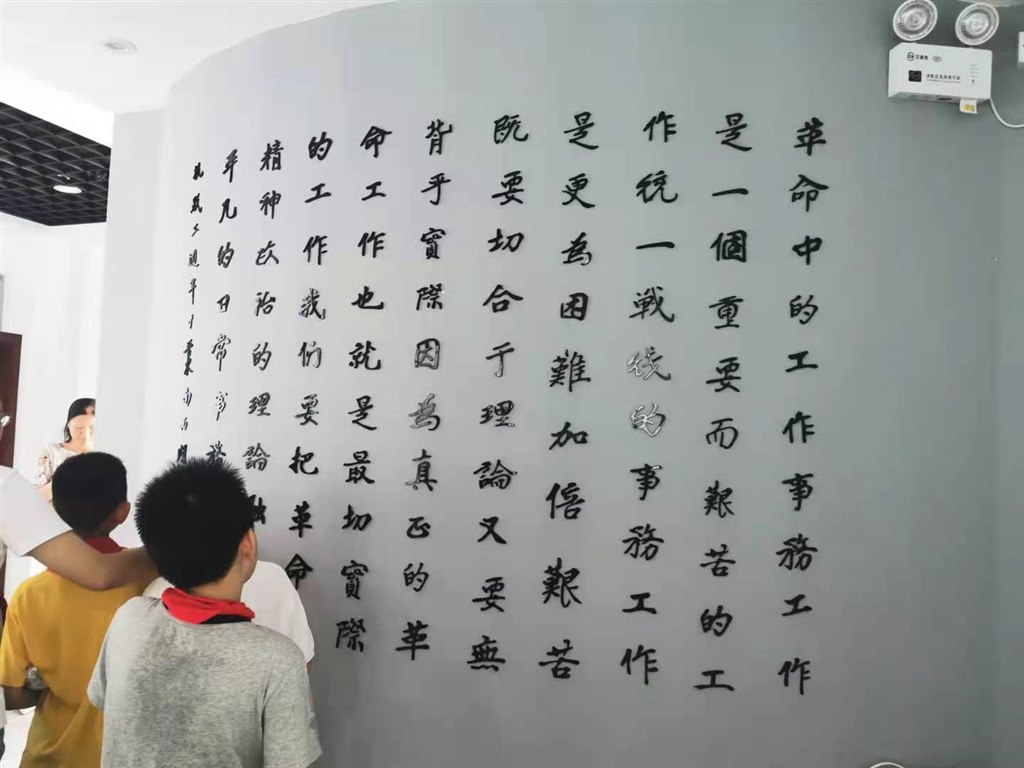 革命中的工作事務工作
是一個重要而艱苦的工
作統一戰綫的事務工作
是更為困難加倍艱苦
既要切合于理論又要無
背乎實際因為真正的革
命工作也就是最切實際
的工作我們要把革命
精神政治的理論融
平凡的日常事務